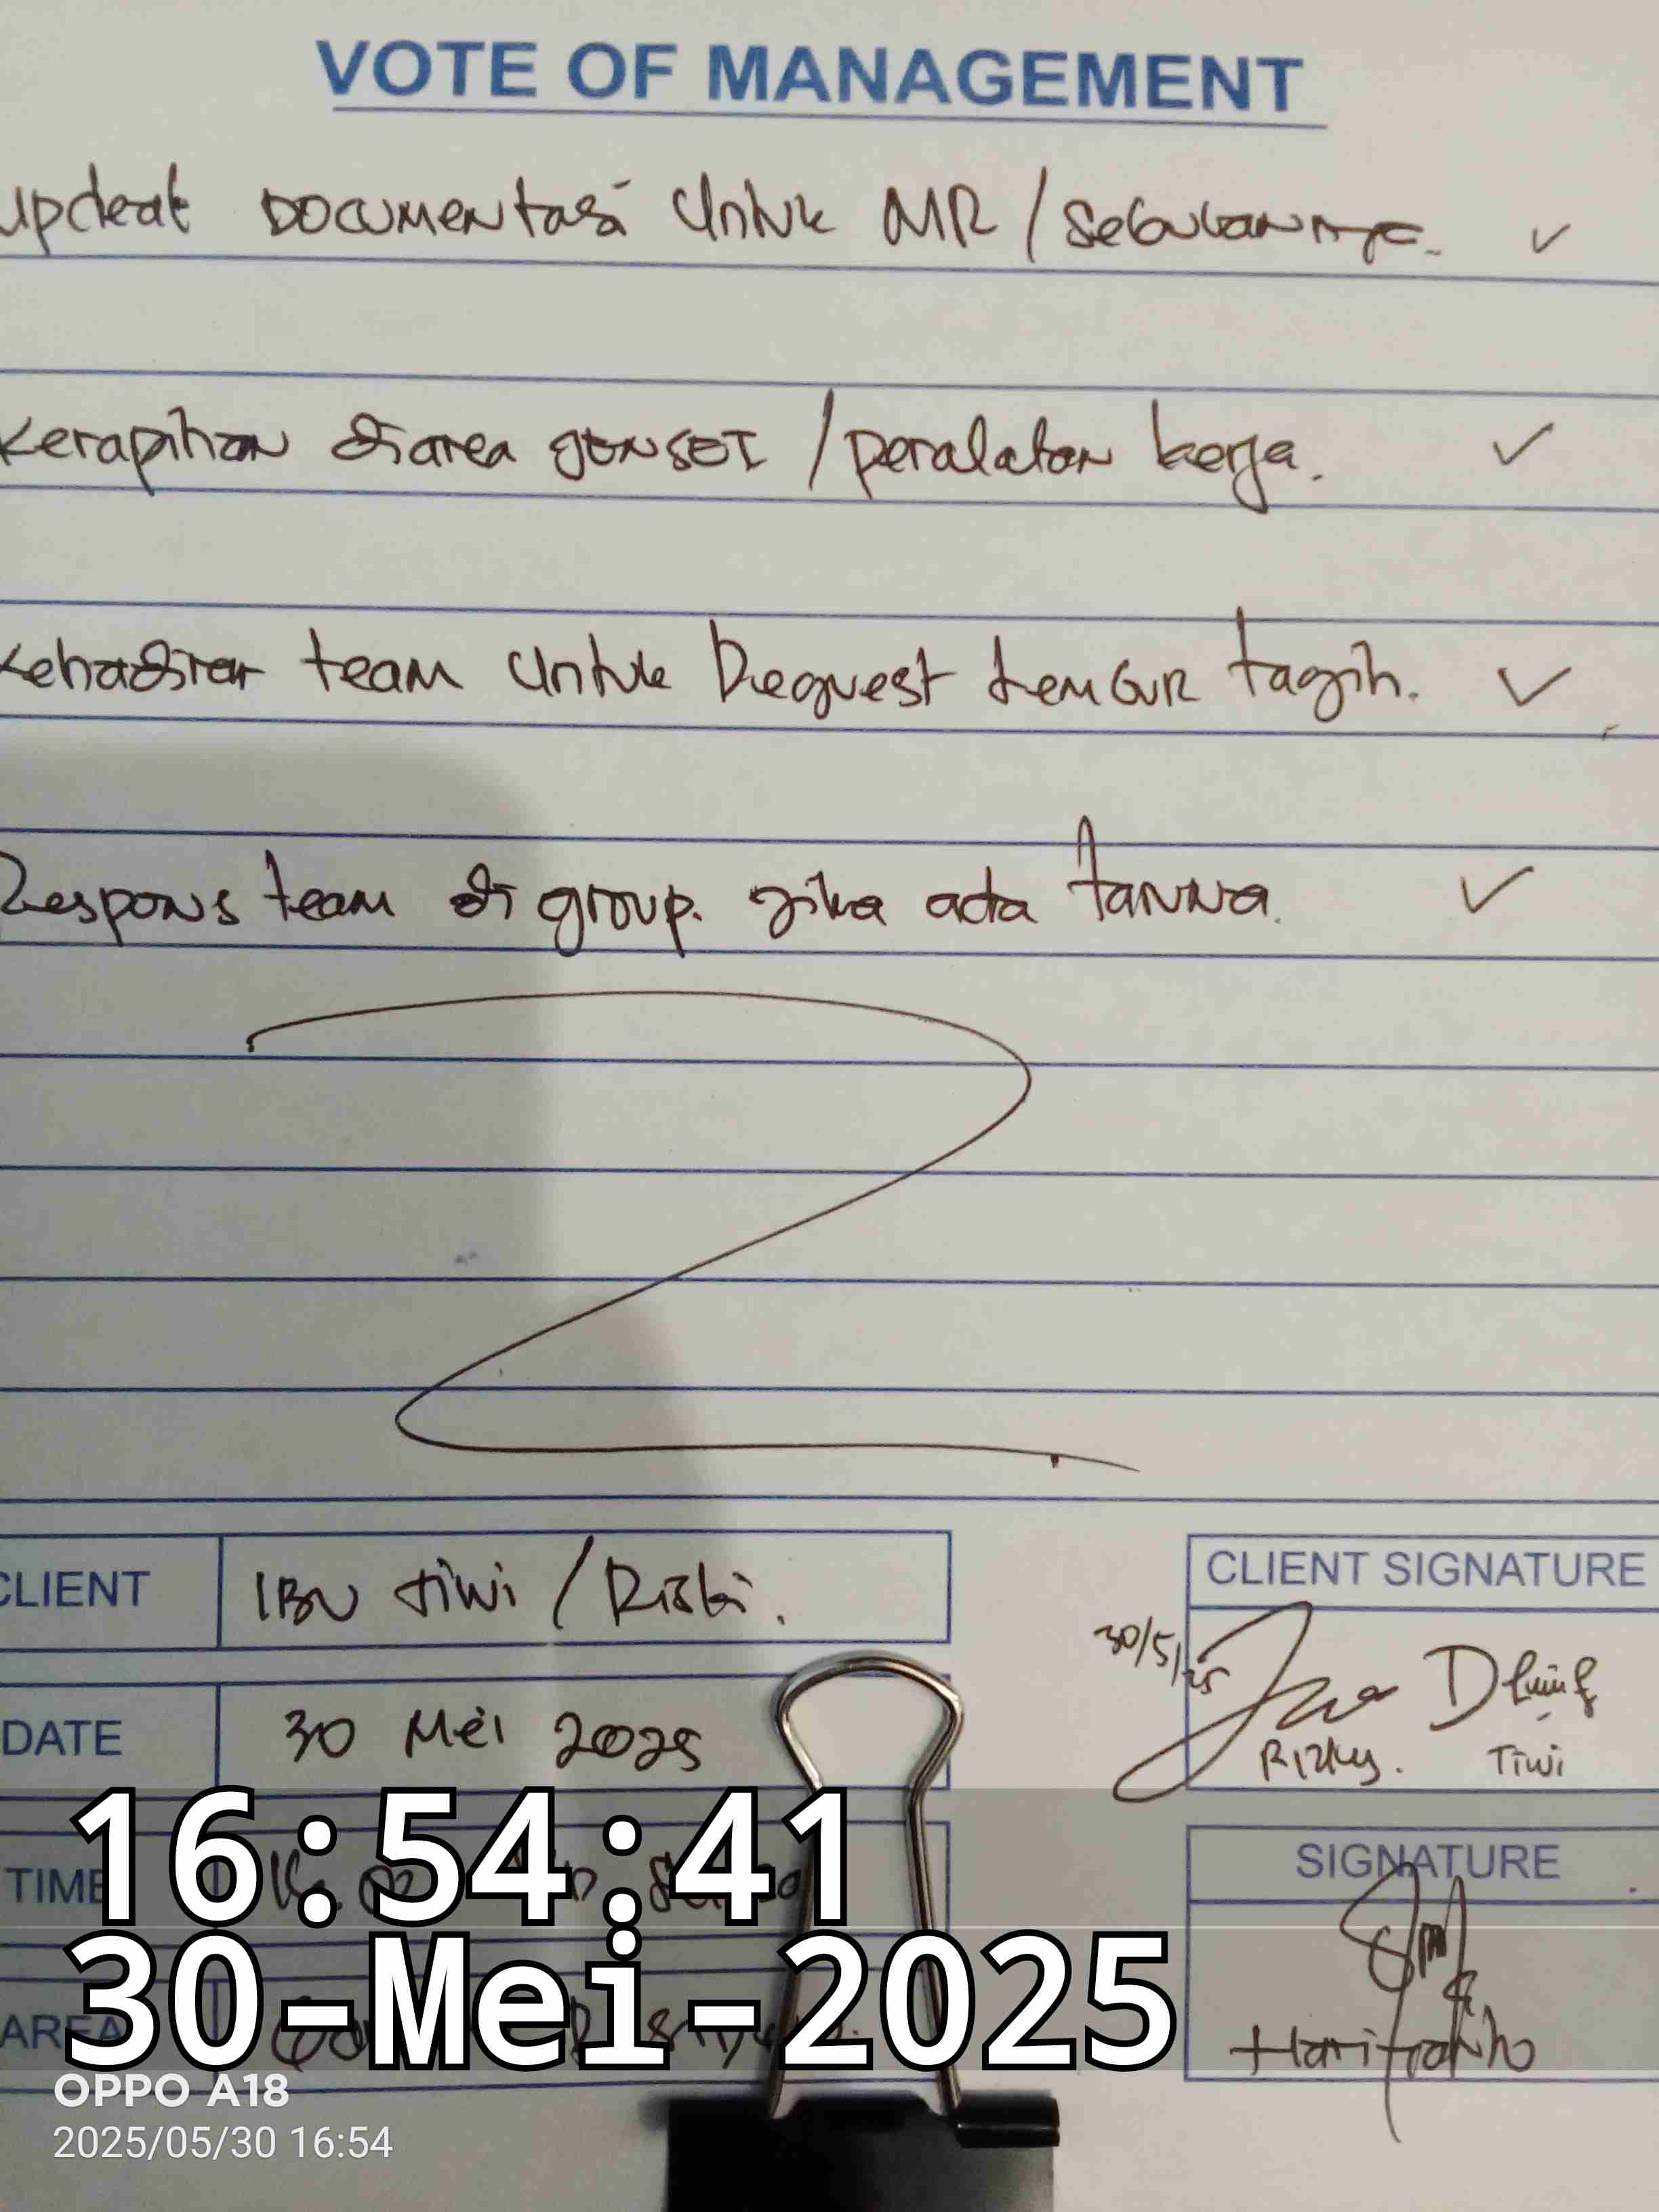 VOTE OF MANAGEMENT
Updeat DOCUMENtasi Untuk MR / Sebulannya. ✓
Kerapihan diarea GENSET / peralatan kerja. ✓
Kehadiran team Untuk Request lemGUR tagih. ✓
Respons team di group. jika ada tanya. ✓
CLIENT IBU tiwi / Riski.
CLIENT SIGNATURE
30/5/25
Rizky. Tiwi
DATE 30 Mei 2025
16:54:41
TIME
SIGNATURE
30-Mei-2025
AREA
Haritranho
OPPO A18
2025/05/30 16:54